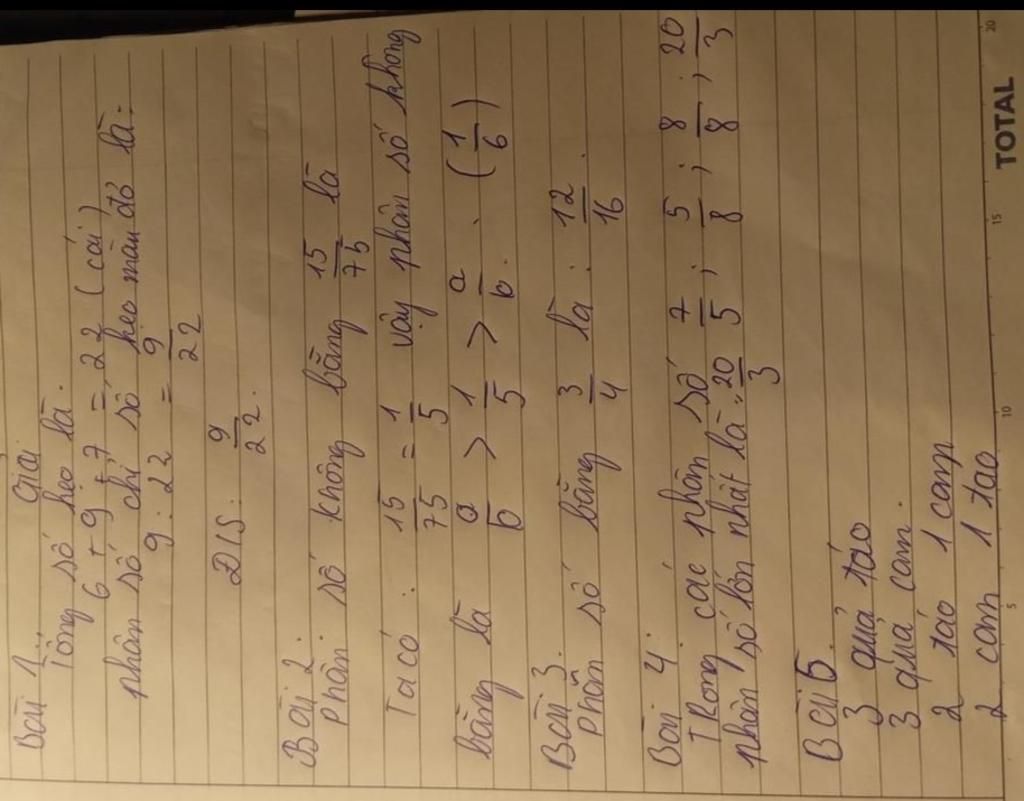 Bài 1: Giải
Tổng số kẹo là.
6 + 9 + 7 = 22 (cái)
phân số chỉ số kẹo màu đỏ là:
9 : 22 = 9/22
Đ/S: 9/22.
Bài 2:
Phân số không bằng 15/75 là
Ta có: 15/75 = 1/5 vậy phân số không
bằng là a/b > 1/5 > a/b. (1/6)
Bài 3.
phân số bằng 3/4 là: 12/16.
Bài 4:
TRong các phân số 7/5; 5/8; 8/8; 20/3
phân số lớn nhất là: 20/3
Bài 5.
3 quả táo
3 quả cam.
2 táo 1 cam
2 cam 1 táo
5 10 15 20
TOTAL